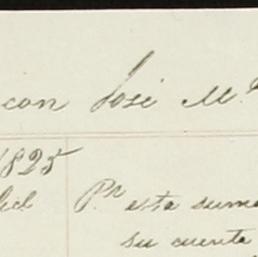 con José M.ª
1825
P.r esta suma
su cuenta